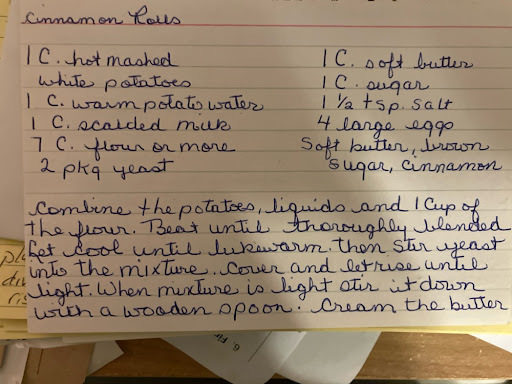 Cinnamon Rolls
1 C. hot mashed
white potatoes
1 C. warm potato water
1 C. scalded milk
7 C. flour or more
2 pkg yeast
1 C. soft butter
1 C. sugar
1 ½ tsp. salt
4 large eggs
Soft butter, brown
sugar, cinnamon
Combine the potatoes, liquids and 1 Cup of
the flour. Beat until thoroughly blended
Let cool until lukewarm. then stir yeast
into the mixture. Cover and let rise until
light. When mixture is light stir it down
with a wooden spoon. Cream the butter